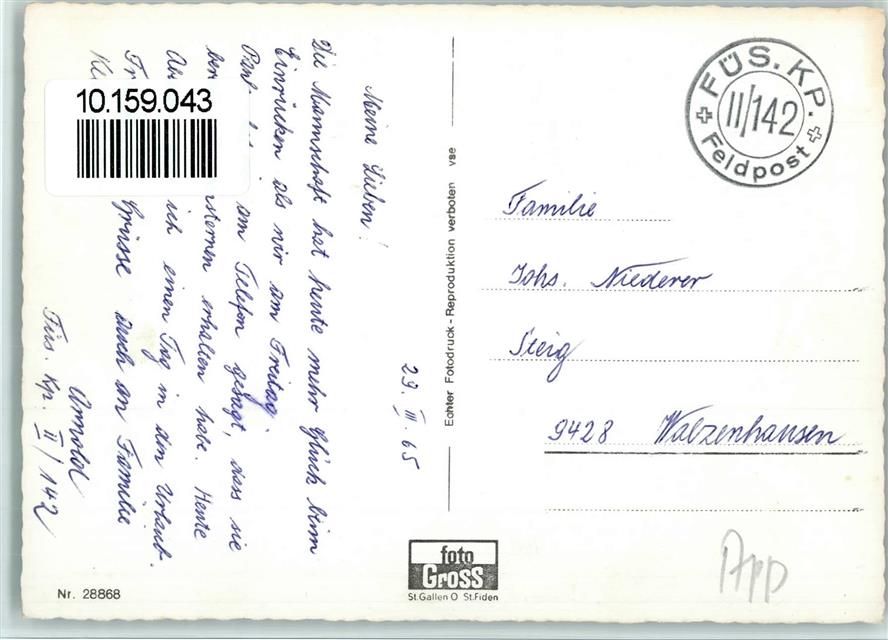 10.159.043
FÜS. KP.
II/142
Feldpost
29. III. 65
Meine Lieben!
Die Mannschaft hat heute mehr Glück beim
Einrücken als wir am Freitag.
am Telefon gesagt, dass sie
erhalten habe. Heute
ich einen Tag in den Urlaub.
Grüsse auch an Familie
Arnold
Füs. Kp. II/142
Echter Fotodruck - Reproduktion verboten vse
Familie
Johs. Niederer
Steig
9428 Walzenhausen
foto
Gross
St.Gallen O St.Fiden
Nr. 28868
App